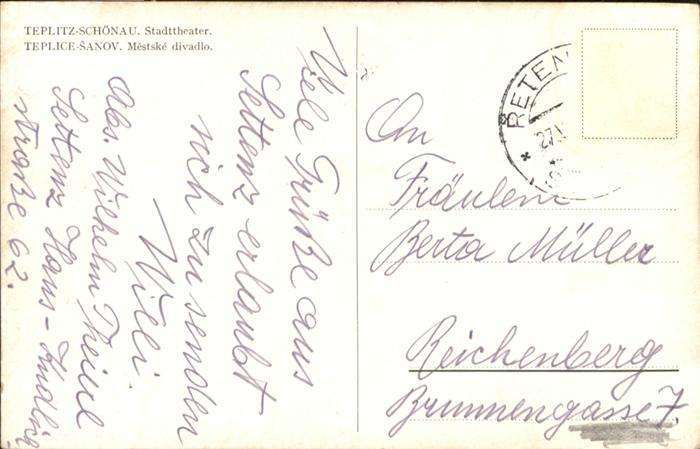 TEPLITZ-SCHÖNAU. Stadttheater.
TEPLICE-ŠANOV. Městské divadlo.
Viele Grüße aus
Settenz erlaubt
sich zu senden
Willi.
Abs. Wilhelm
Settenz Hans-Kudlich
straße 62.
ŘETEN
27.
An
Fräulein
Berta Müller
Reichenberg
Brunnengasse 7.